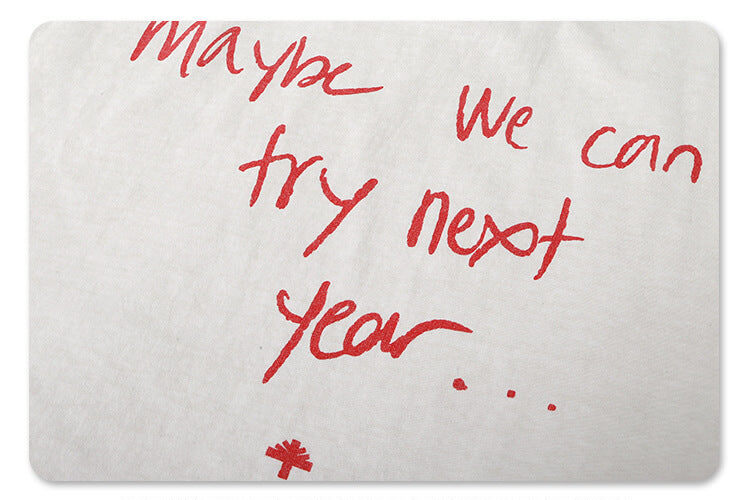 Maybe we can
try next
year...